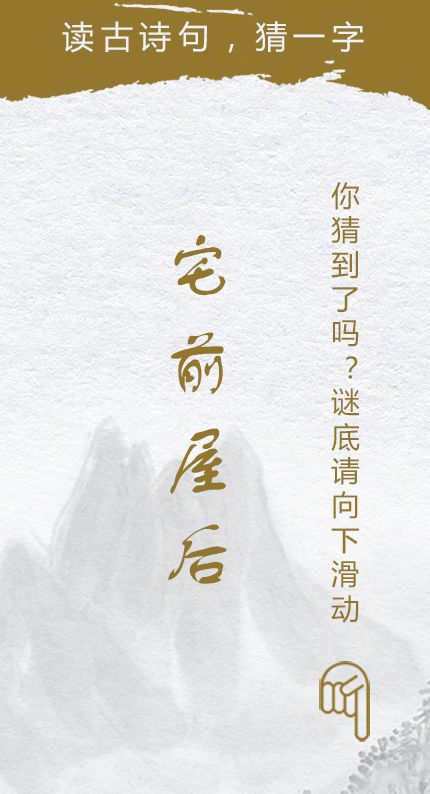 读古诗句，猜一字
你猜到了吗？谜底请向下滑动
宅前屋后